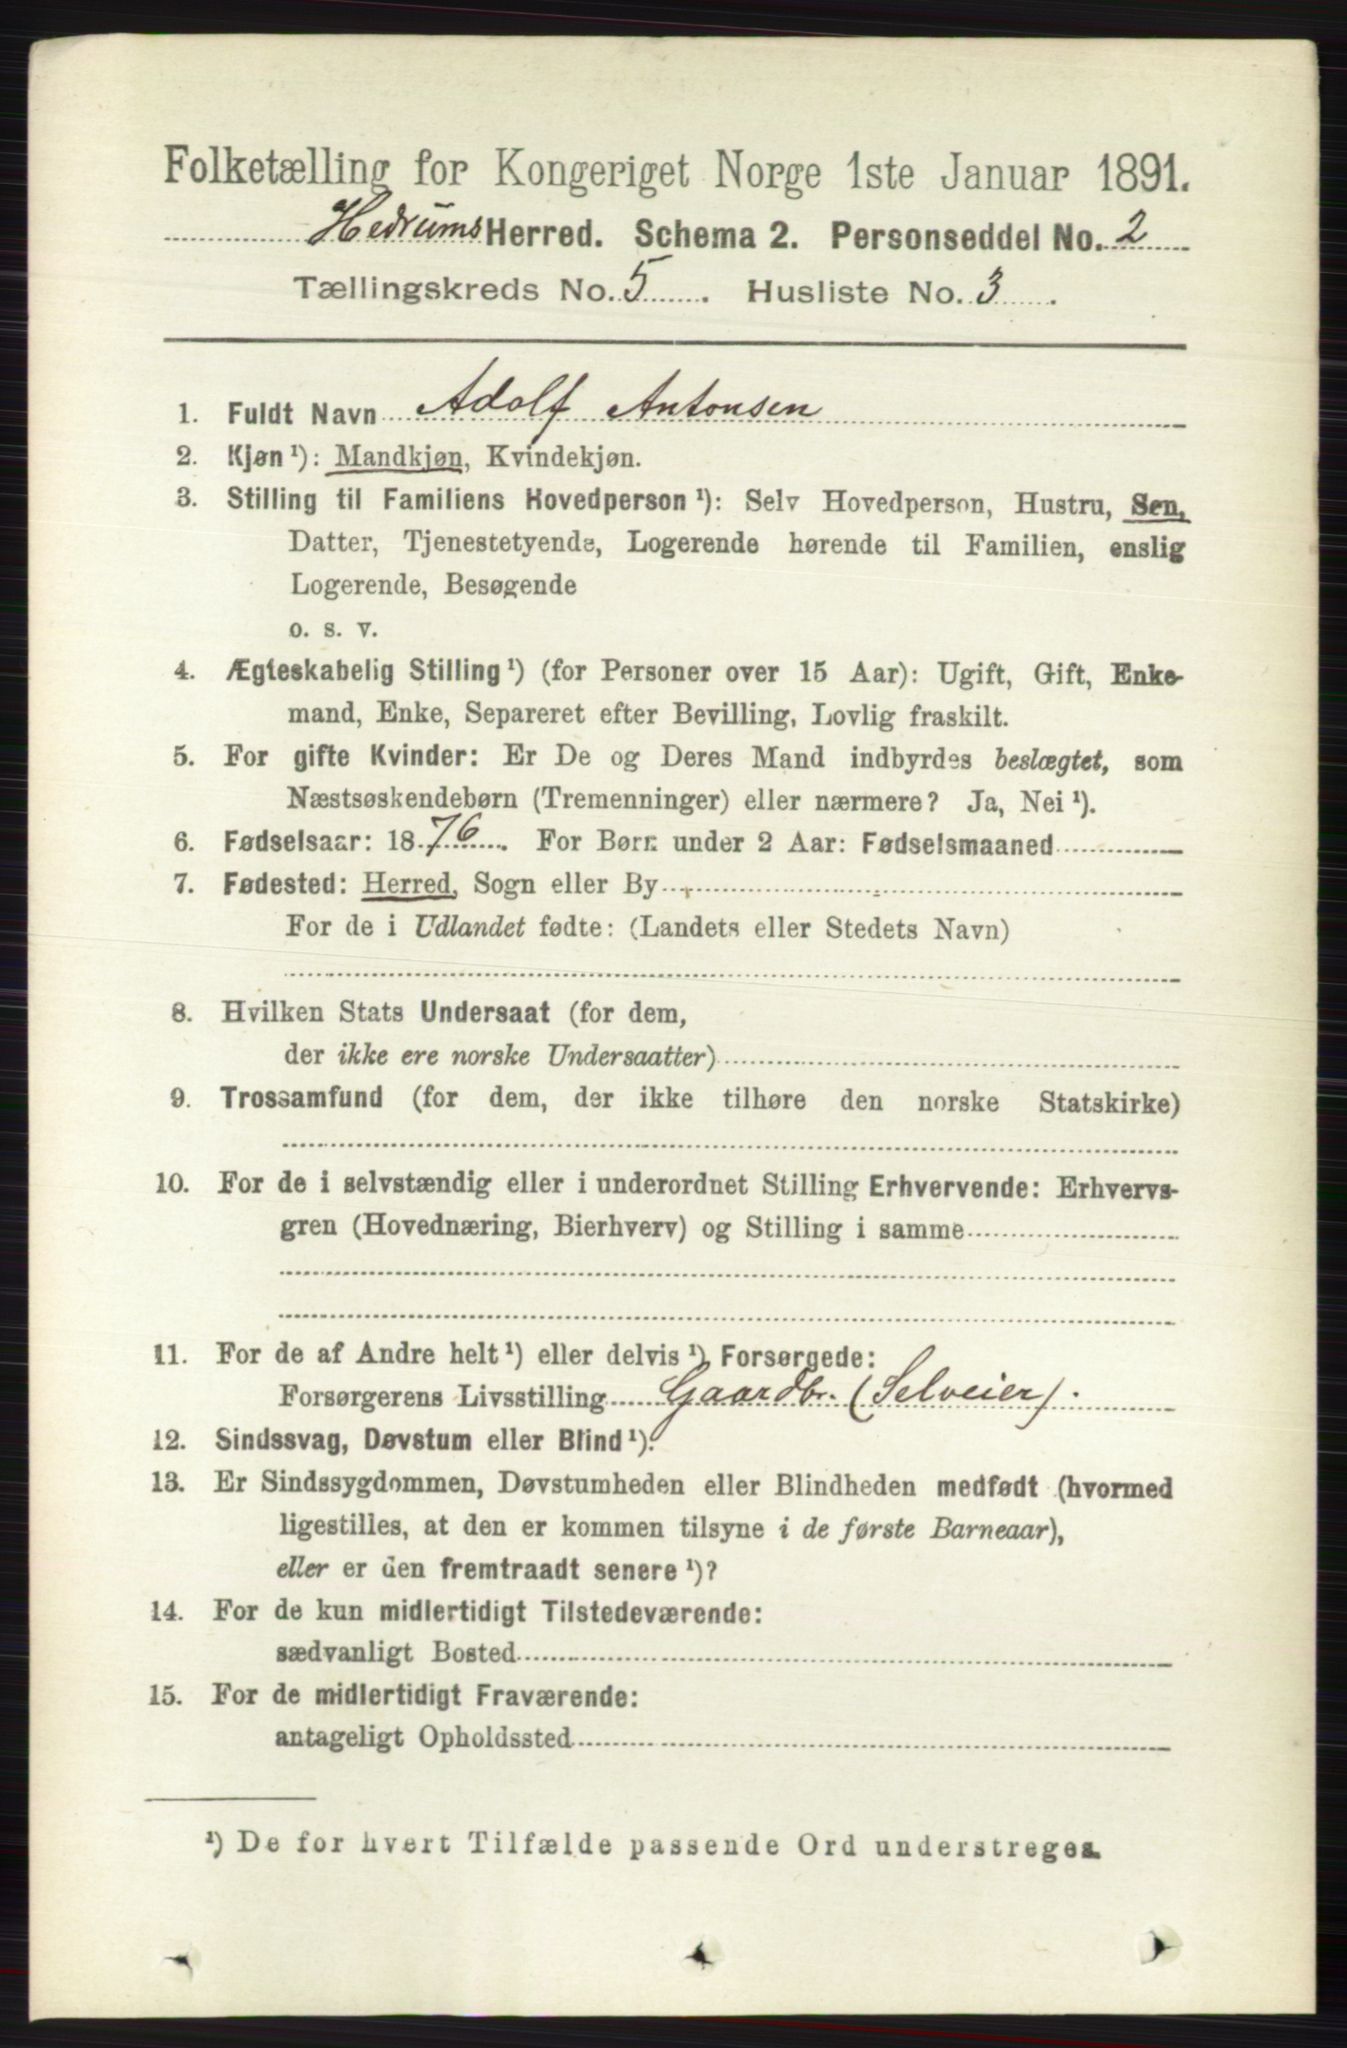 Folketælling for Kongeriget Norge 1ste Januar 1891.
Hedrums Herred. Schema 2. Personseddel No. 2
Tællingskreds No. 5. Husliste No. 3.
1. Fuldt Navn Adolf Antonsen
2. Kjøn ¹): Mandkjøn, Kvindekjøn.
3. Stilling til Familiens Hovedperson ¹): Selv Hovedperson, Hustru, Søn,
Datter, Tjenestetyende, Logerende hørende til Familien, enslig
Logerende, Besøgende
o. s. v.
4. Ægteskabelig Stilling ¹) (for Personer over 15 Aar): Ugift, Gift, Enke-
mand, Enke, Separeret efter Bevilling, Lovlig fraskilt.
5. For gifte Kvinder: Er De og Deres Mand indbyrdes beslægtet, som
Næstsøskendebørn (Tremenninger) eller nærmere? Ja, Nei ¹).
6. Fødselsaar: 1876. For Børn under 2 Aar: Fødselsmaaned
7. Fødested: Herred, Sogn eller By
For de i Udlandet fødte: (Landets eller Stedets Navn)
8. Hvilken Stats Undersaat (for dem,
der ikke ere norske Undersaatter)
9. Trossamfund (for dem, der ikke tilhøre den norske Statskirke)
10. For de i selvstændig eller i underordnet Stilling Erhvervende: Erhvervs-
gren (Hovednæring, Bierhverv) og Stilling i samme
11. For de af Andre helt ¹) eller delvis ¹) Forsørgede:
Forsørgerens Livsstilling Gaardbr. (Selveier).
12. Sindssvag, Døvstum eller Blind ¹).
13. Er Sindssygdommen, Døvstumheden eller Blindheden medfødt (hvormed
ligestilles, at den er kommen tilsyne i de første Barneaar),
eller er den fremtraadt senere ¹)?
14. For de kun midlertidigt Tilstedeværende:
sædvanligt Bosted
15. For de midlertidigt Fraværende:
antageligt Opholdssted
¹) De for hvert Tilfælde passende Ord understreges.